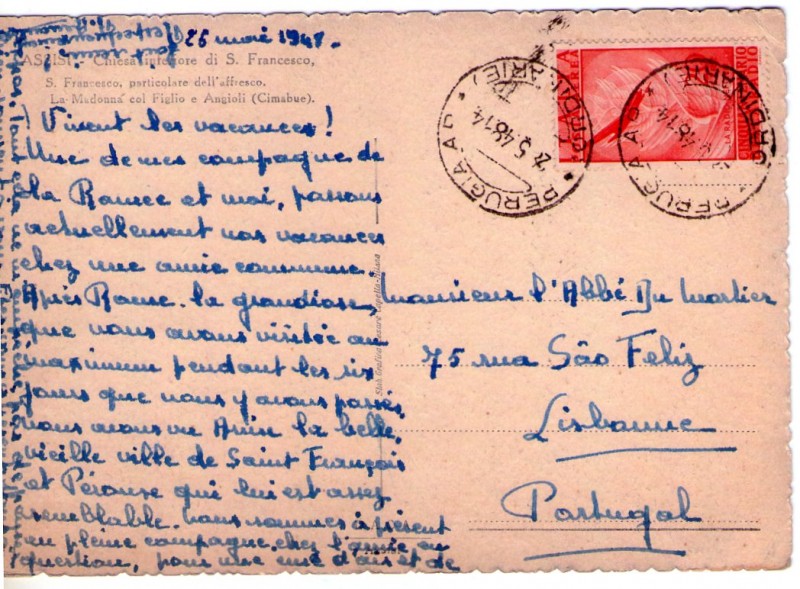 25 mai 1948.
ASSISI - Chiesa inferiore di S. Francesco,
S. Francesco, particolare dell'affresco.
La Madonna col Figlio e Angioli (Cimabue).
Vivent les vacances!
Une de mes compagne de
la Ramee et moi, passons
actuellement nos vacances
chez une amie commune.
Après Rome. la grandiose,
que nous avons visitée au
maximum pendant les six
jours que nous y avons passés,
nous avons vu Assise la belle,
vieille ville de Saint François
et Pérouse qui lui est assez
semblable. nous sommes à présent
en pleine campagne chez l'amie en
question, pour une cure d'air et de
monsieur l'Abbé Du Mortier
75 rua São Feliz
Lisbonne
Portugal
PERUGIA A.P. * (ORDINARIE) *
5.48 14
PERUGIA A.P. * (ORDINARIE) *
5.48 14